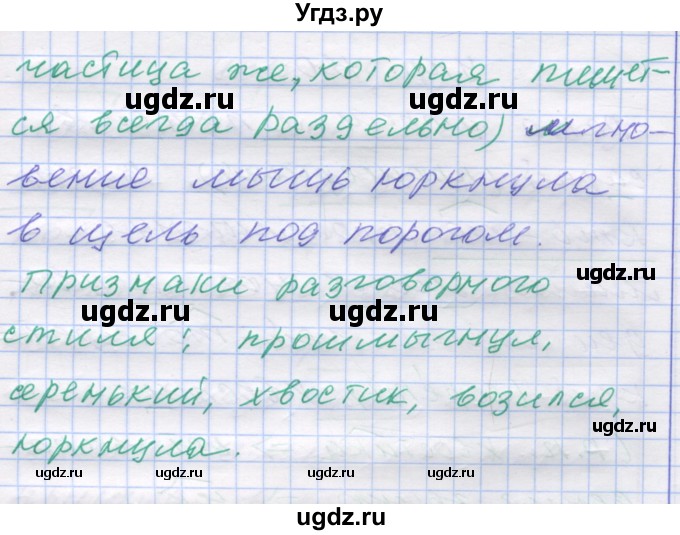 Угдз.ру
частица же, которая пишет-
ugdz.ru ugdz.ru
ся всегда раздельно) мгно-
вение мышь юркнула
в щель под порогом.
ugdz.ru
Признаки разговорного
ugdz.ru ugdz.ru
стиля: прошмыгнул,
серенький, хвостик, возился,
ugdz.ru
юркнула.
ugdz.ru ugdz.ru ugdz.ru ugdz.ru
ugdz.ru